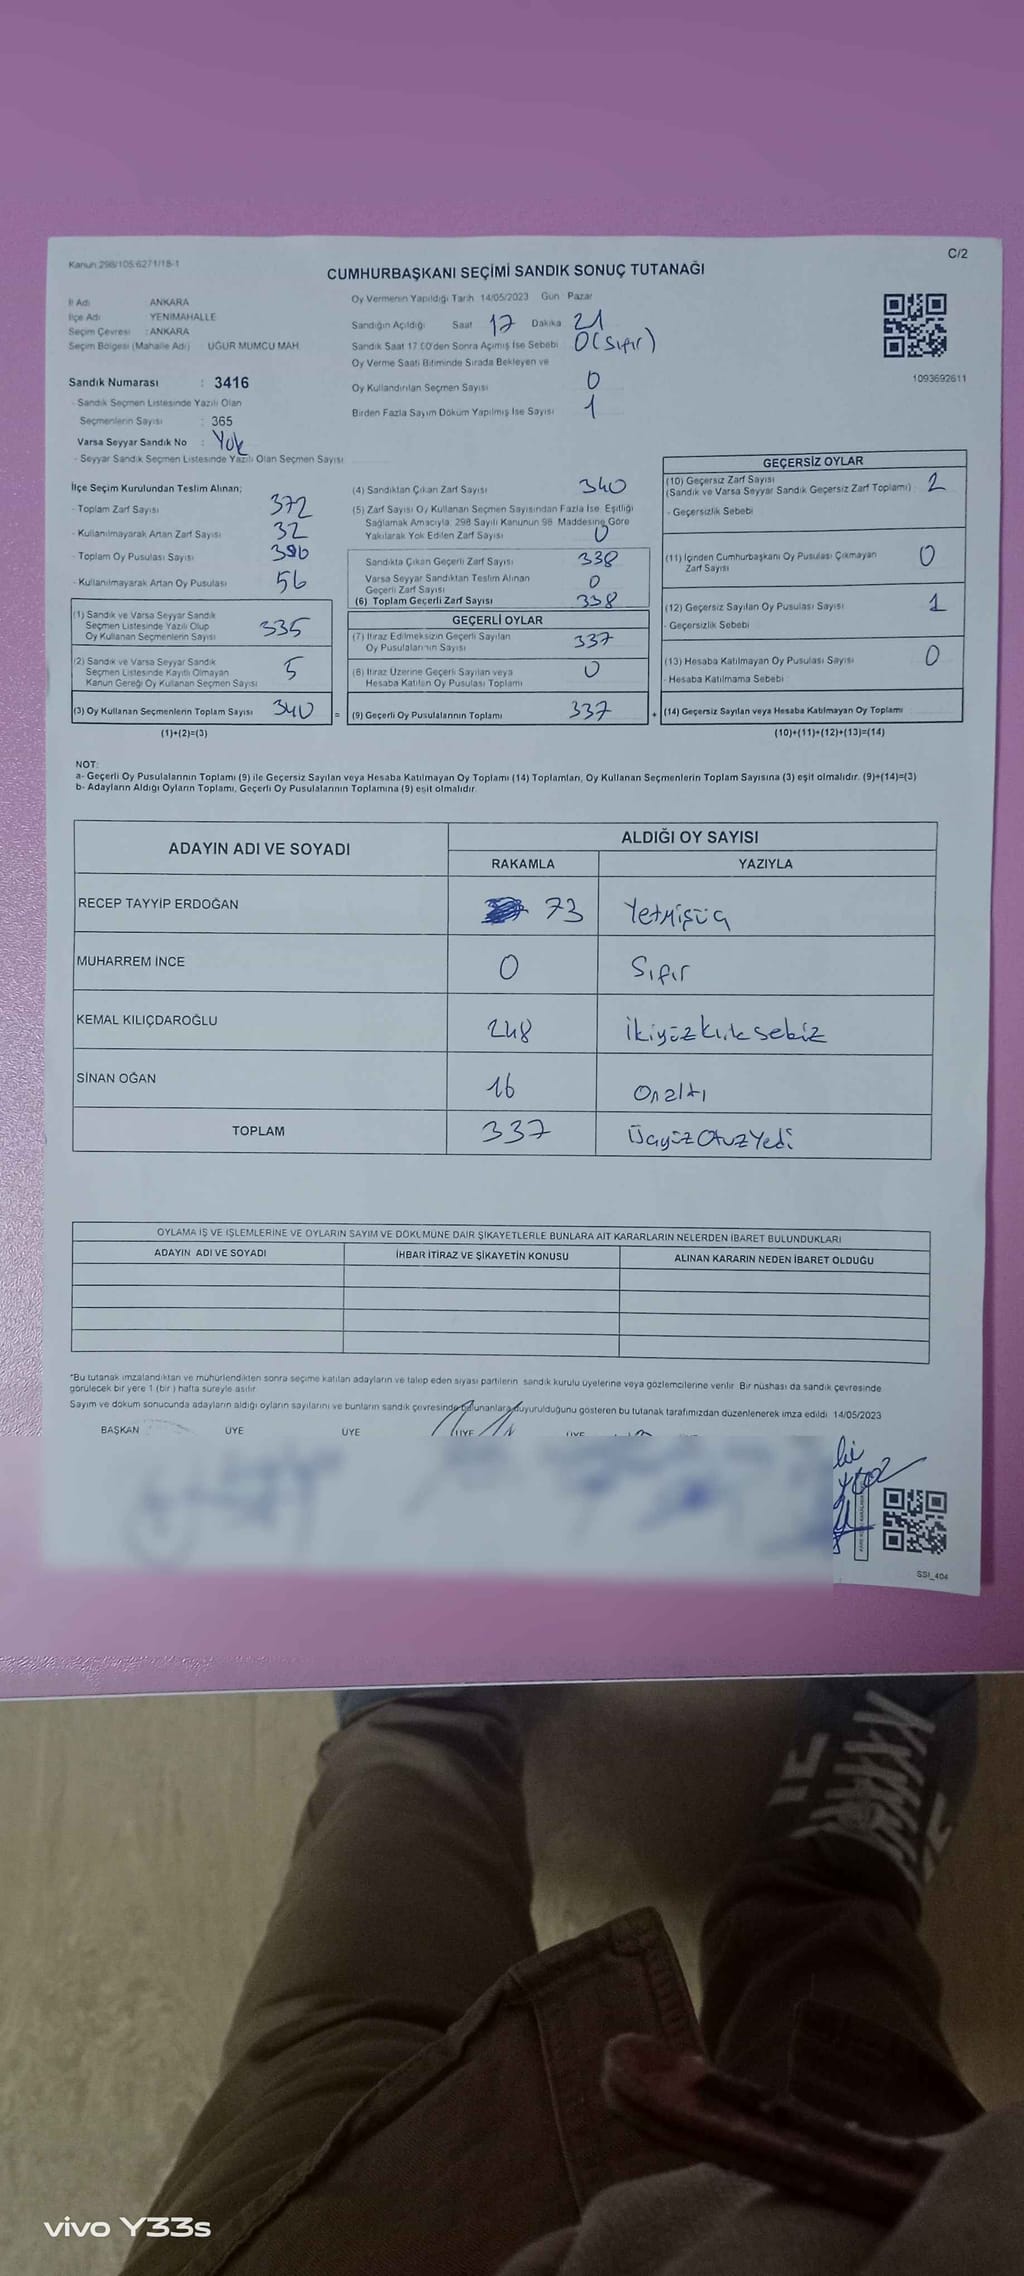 Kanun 298/105.6271/18-1
C/2
CUMHURBAŞKANI SEÇİMİ SANDIK SONUÇ TUTANAĞI
İl Adı ANKARA
İlçe Adı YENİMAHALLE
Seçim Çevresi : ANKARA
Seçim Bölgesi (Mahalle Adı) UĞUR MUMCU MAH.
Sandık Numarası : 3416
- Sandık Seçmen Listesinde Yazılı Olan
Seçmenlerin Sayısı : 365
Varsa Seyyar Sandık No : Yok
- Seyyar Sandık Seçmen Listesinde Yazılı Olan Seçmen Sayısı
Oy Vermenin Yapıldığı Tarih 14/05/2023 Gün Pazar
Sandığın Açıldığı Saat 17 Dakika 21
Sandık Saat 17.00'den Sonra Açımış İse Sebebi 0 (Sıfır)
Oy Verme Saati Bitiminde Sırada Bekleyen ve
Oy Kullandırılan Seçmen Sayısı 0
Birden Fazla Sayım Döküm Yapılmış İse Sayısı 1
1093692611
İlçe Seçim Kurulundan Teslim Alınan;
- Toplam Zarf Sayısı 372
- Kullanılmayarak Artan Zarf Sayısı 32
- Toplam Oy Pusulası Sayısı 396
- Kullanılmayarak Artan Oy Pusulası 56
(1) Sandık ve Varsa Seyyar Sandık
Seçmen Listesinde Yazılı Olup
Oy Kullanan Seçmenlerin Sayısı 335
(2) Sandık ve Varsa Seyyar Sandık
Seçmen Listesinde Kayıtlı Olmayan
Kanun Gereği Oy Kullanan Seçmen Sayısı 5
(3) Oy Kullanan Seçmenlerin Toplam Sayısı 340 =
(1)+(2)=(3)
(4) Sandıktan Çıkan Zarf Sayısı 340
(5) Zarf Sayısı Oy Kullanan Seçmen Sayısından Fazla İse Eşitliği
Sağlamak Amacıyla, 298 Sayılı Kanunun 98. Maddesine Göre
Yakılarak Yok Edilen Zarf Sayısı 0
Sandıkta Çıkan Geçerli Zarf Sayısı 338
Varsa Seyyar Sandıktan Teslim Alınan
Geçerli Zarf Sayısı 0
(6) Toplam Geçerli Zarf Sayısı 338
GEÇERLİ OYLAR
(7) İtiraz Edilmeksizin Geçerli Sayılan
Oy Pusulalarının Sayısı 337
(8) İtiraz Üzerine Geçerli Sayılan veya
Hesaba Katılan Oy Pusulası Toplamı 0
(9) Geçerli Oy Pusulalarının Toplamı 337 +
GEÇERSİZ OYLAR
(10) Geçersiz Zarf Sayısı
(Sandık ve Varsa Seyyar Sandık Geçersiz Zarf Toplamı) 2
- Geçersizlik Sebebi
(11) İçinden Cumhurbaşkanı Oy Pusulası Çıkmayan
Zarf Sayısı 0
(12) Geçersiz Sayılan Oy Pusulası Sayısı 1
- Geçersizlik Sebebi
(13) Hesaba Katılmayan Oy Pusulası Sayısı 0
- Hesaba Katılmama Sebebi
(14) Geçersiz Sayılan veya Hesaba Katılmayan Oy Toplamı
(10)+(11)+(12)+(13)=(14)
NOT:
a- Geçerli Oy Pusulalarının Toplamı (9) ile Geçersiz Sayılan veya Hesaba Katılmayan Oy Toplamı (14) Toplamları, Oy Kullanan Seçmenlerin Toplam Sayısına (3) eşit olmalıdır. (9)+(14)=(3)
b- Adayların Aldığı Oyların Toplamı, Geçerli Oy Pusulalarının Toplamına (9) eşit olmalıdır.
ADAYIN ADI VE SOYADI ALDIĞI OY SAYISI
RAKAMLA YAZIYLA
RECEP TAYYİP ERDOĞAN 73 Yetmişüç
MUHARREM İNCE 0 Sıfır
KEMAL KILIÇDAROĞLU 248 İkiyüzkırksekiz
SİNAN OĞAN 16 Onaltı
TOPLAM 337 ÜçyüzOtuzYedi
OYLAMA İŞ VE İŞLEMLERİNE VE OYLARIN SAYIM VE DÖKÜMÜNE DAİR ŞİKAYETLERLE BUNLARA AİT KARARLARIN NELERDEN İBARET BULUNDUKLARI
ADAYIN ADI VE SOYADI İHBAR İTİRAZ VE ŞİKAYETİN KONUSU ALINAN KARARIN NEDEN İBARET OLDUĞU
*Bu tutanak imzalandıktan ve mühürlendikten sonra seçime katılan adayların ve talep eden siyasi partilerin sandık kurulu üyelerine veya gözlemcilerine verilir. Bir nüshası da sandık çevresinde
görülecek bir yere 1 (bir) hafta süreyle asılır.
Sayım ve döküm sonucunda adayların aldığı oyların sayılarını ve bunların sandık çevresinde bulunanlara duyurulduğunu gösteren bu tutanak tarafımızdan düzenlenerek imza edildi. 14/05/2023
BAŞKAN ÜYE ÜYE ÜYE ÜYE
SSI_404
vivo Y33s